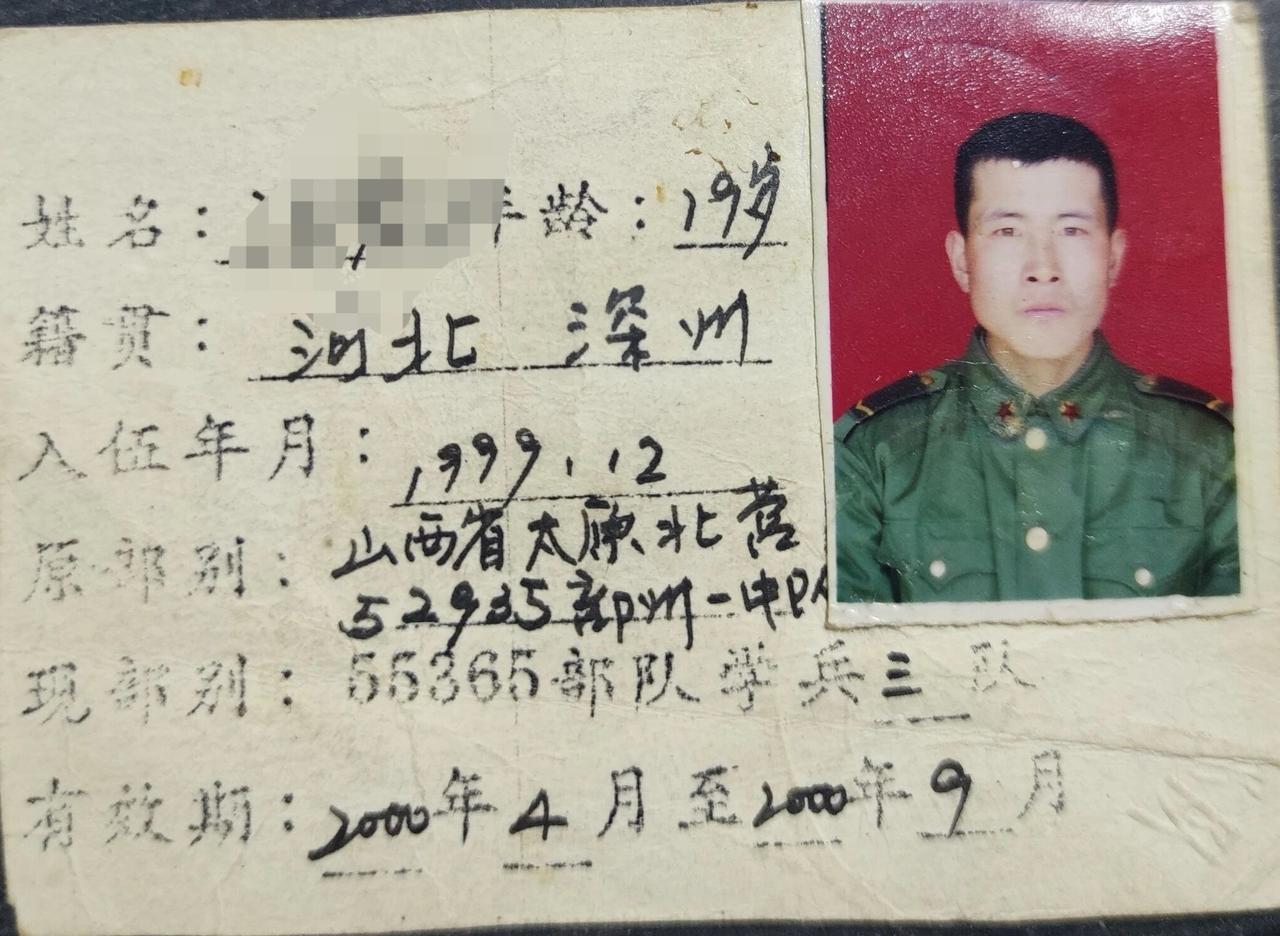 姓名： 年龄：19岁
籍贯：河北 深州
入伍年月：1999.12
原部别：山西省太原北营
52935部州一中队
现部别：55365部队学兵三队
有效期：2000年4月至2000年9月